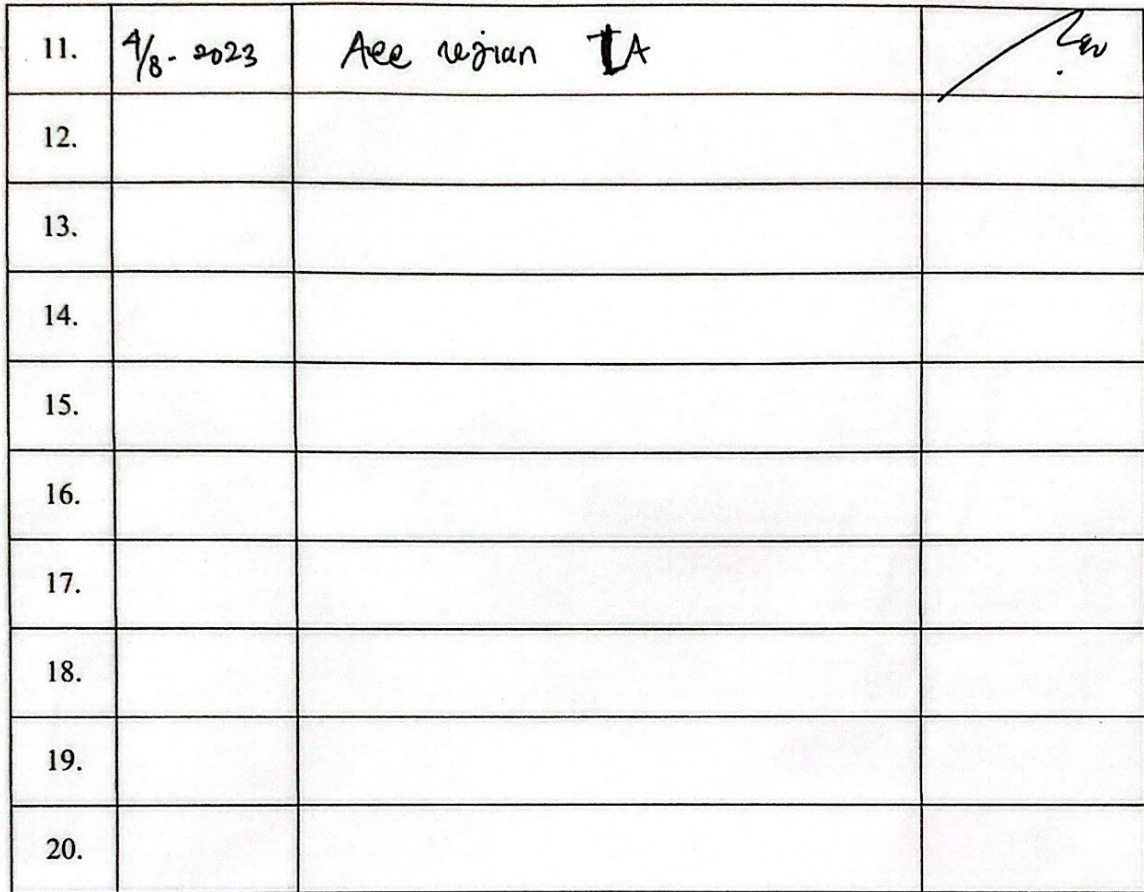 11. 4/8-2023 Acc ujian TA
12.
13.
14.
15.
16.
17.
18.
19.
20.